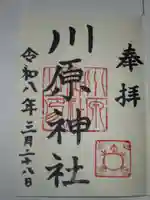 奉拝
川原神社
令和八年三月二十八日